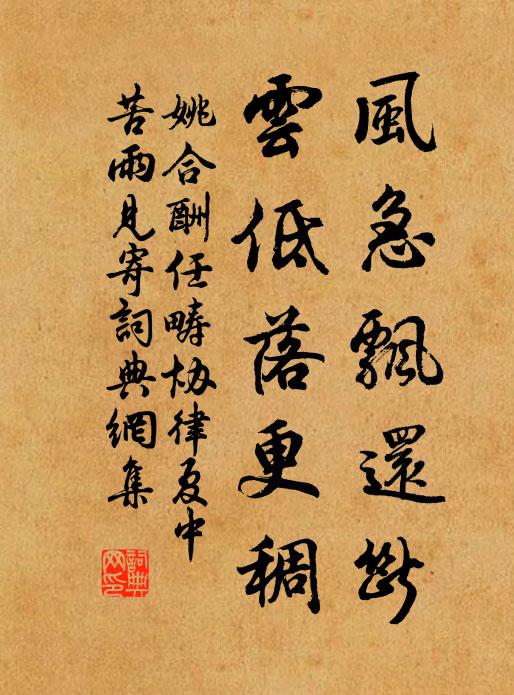 風急飄還斷
雲低落更稠
姚合酬任疇協律夏中
苦雨見寄詞典網集
詞典
網印